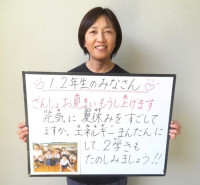 1.2年生のみなさん
ざんしょお見まいもうし上げます
元気に夏休みをすごして
ますか。エネルギーまんたんに
して、2学きも
たのしみましょう!!